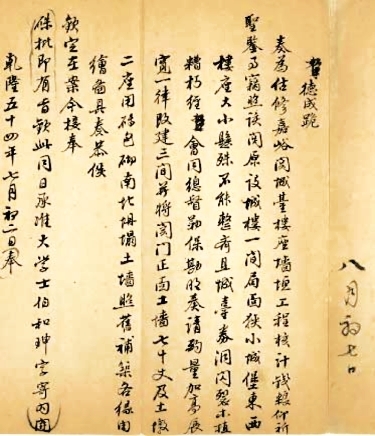 八月初七日
德成跪
奏為估修嘉峪關城臺樓座墻垣工程核計錢糧仰祈
聖鑒事竊照該關原設城樓一間局面狹小城堡東西
樓座大小懸殊不能整齊且城臺券洞閃裂木植
糟朽經會同總督勒保勘明奏請酌量加高展
寬一律改建三間並將關門正面土墻七十丈及土墩
二座用磚包砌南北坍塌土墻照舊補築各緣由
繪圖具奏恭候
欽定在案今接奉
硃批即有旨欽此同日承准大學士伯和珅字寄內開
乾隆五十四年七月初二日奉